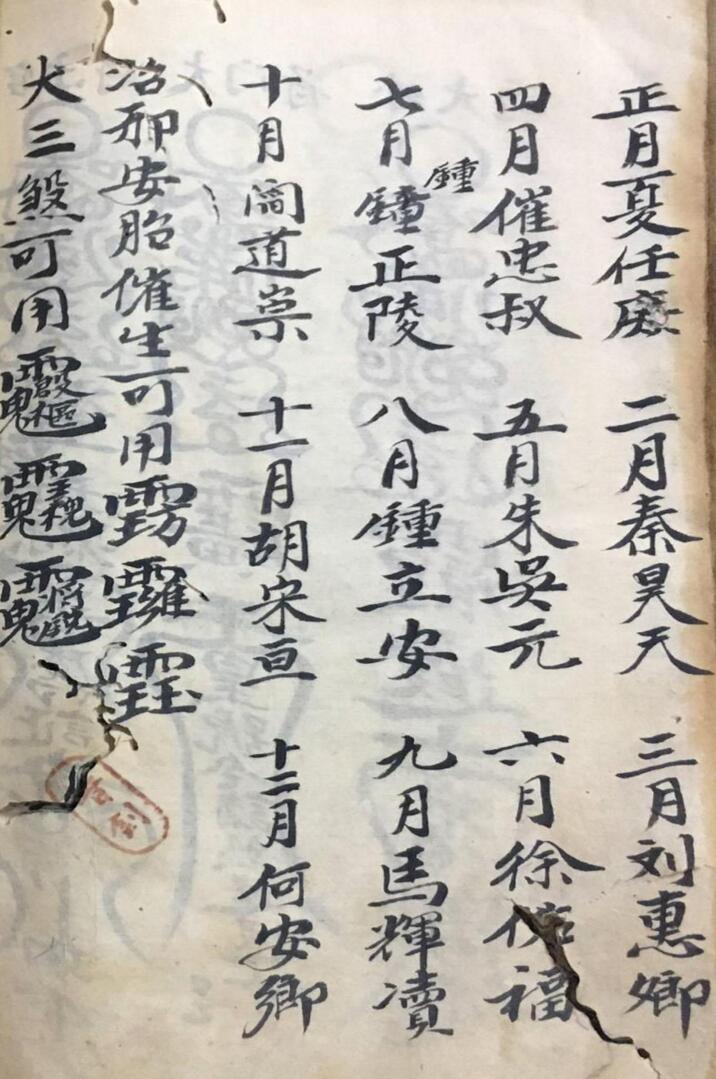 正月夏任 二月秦昊天 三月刘惠卿
四月催忠叔 五月朱吳元 六月徐 福
七月鐘正陵 八月鍾立安 九月馬輝瀆
鍾
十月 道崇 十一月胡宋亘 十二月何安鄉
治邪安胎催生可用
大三煞可用